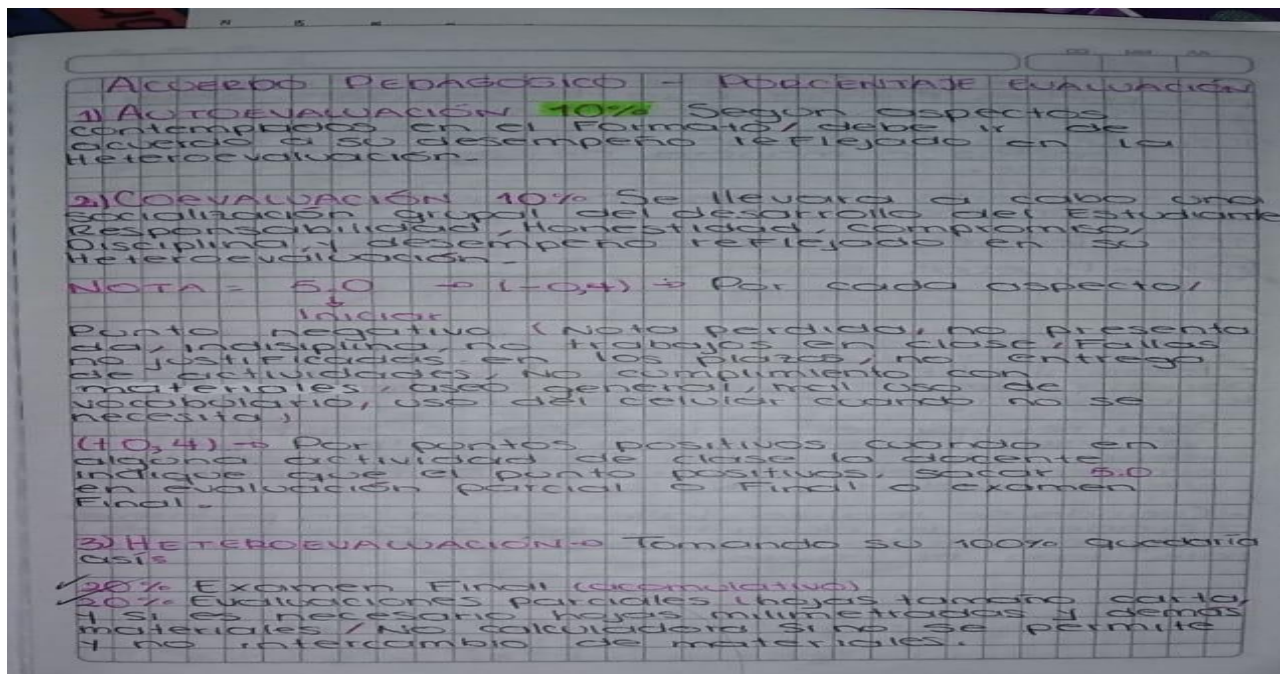 Acuerdo Pedagógico - Porcentaje Evaluación
1) Autoevaluación 10% Segun aspectos
contemplados en el Formato, debe ir de
acuerdo a su desempeño reflejado en la
Heteroevaluación.
2) Coevaluación 10% Se llevara a cabo una
socialización grupal del desarrollo del Estudiante
Responsabilidad, Honestidad, compromiso,
Disciplina, y desempeño reflejado en su
Heteroevaluación.
NOTA = 5.0 → (-0,4) → Por cada aspecto/
↓
Iniciar
Punto negativo (Nota perdida, no presenta
da, indisiplina, no trabajos en clase, Fallas
no justificadas en los plazos, no entrego
de actividades, No cumplimiento con
materiales, aseo general, mal uso de
vocabolario, uso del celular cuando no se
necesita)
(+0,4) → Por puntos positivos cuando en
alguna actividad de clase la docente
indique que el punto positivos, sacar 5.0
en evaluación parcial o Final o examen
Final.
3) Heteroevaluación → Tomando su 100% quedaria
asi:
20% Examen Final (acomulativo)
20% Evaluaciones parciales (hojas tamaño carta,
y si es necesario hojas milimetradas y demas
materiales / No calculadora si no se permite
y no intercambio de materiales.